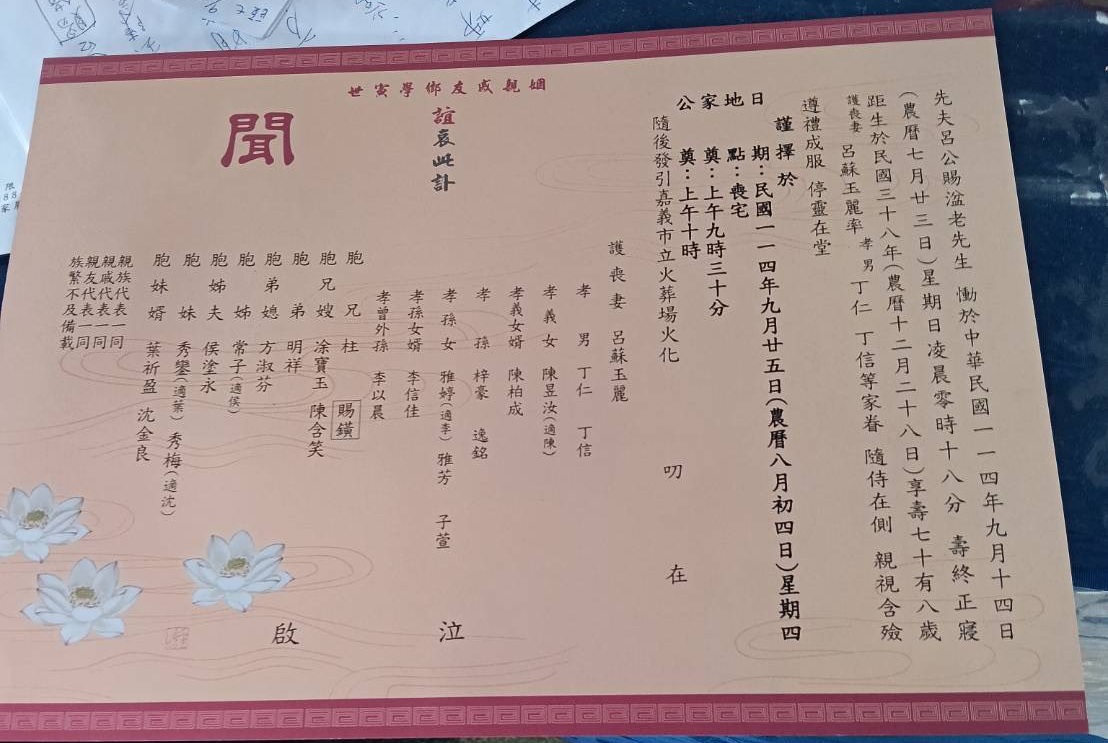 先夫呂公賜湓老先生 慟於中華民國一一四年九月十四日
(農曆七月廿三日)星期日凌晨零時十八分 壽終正寢
距生於民國三十八年(農曆十二月二十八日)享壽七十有八歲
護喪妻 呂蘇玉麗率 孝男 丁仁 丁信等家眷 隨侍在側 親視含殮
遵禮成服 停靈在堂
謹擇於
日期:民國一一四年九月廿五日(農曆八月初四日)星期四
地點:喪宅
家奠:上午九時三十分
公奠:上午十時
隨後發引嘉義市立火葬場火化
叨在
姻親戚友鄉學寅世
誼哀此訃
聞
護喪妻 呂蘇玉麗
孝男 丁仁 丁信
孝義女 陳昱汝(適陳)
孝義女婿 陳柏成
孝孫 梓豪 逸銘
孝孫女 雅婷(適李) 雅芳 子萱
孝孫女婿 李信佳
孝曾外孫 李以晨
泣
胞兄 柱 賜鐄
胞兄嫂 涂寶玉 陳含笑
胞弟 明祥
胞弟媳 方淑芬
胞姊 常子(適侯)
胞姊夫 侯塗永
胞妹 秀鑾(適葉) 秀梅(適沈)
胞妹婿 葉祈盈 沈金良
親族代表一同
親戚代表一同
親友代表一同
族繁不及備載
啟